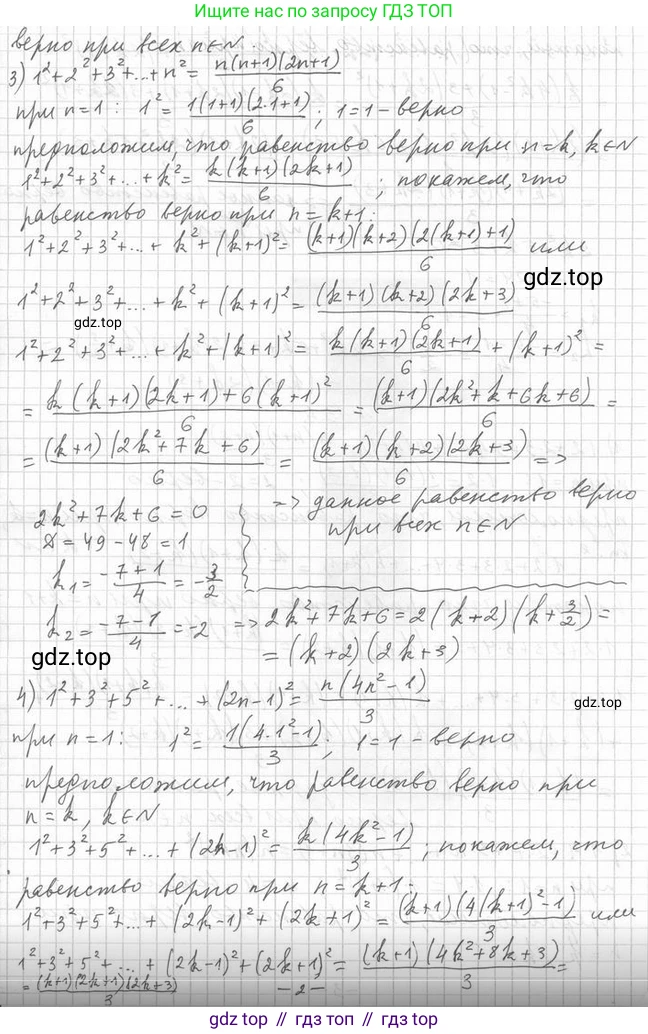 Ищите нас по запросу ГДЗ ТОП
верно при всех n∈N.
3) 1²+2²+3²+...+n² = n(n+1)(2n+1)/6
при n=1: 1² = 1(1+1)(2·1+1)/6; 1=1 – верно
предположим, что равенство верно при n=k, k∈N
1²+2²+3²+...+k² = k(k+1)(2k+1)/6; покажем, что
равенство верно при n=k+1:
1²+2²+3²+...+k²+(k+1)² = (k+1)(k+2)(2(k+1)+1)/6 или
gdz.top
1²+2²+3²+...+k²+(k+1)² = (k+1)(k+2)(2k+3)/6
gdz.top
1²+2²+3²+...+k²+(k+1)² = k(k+1)(2k+1)/6 + (k+1)² =
= k(k+1)(2k+1)+6(k+1)²/6 = (k+1)(2k²+k+6k+6)/6 =
= (k+1)(2k²+7k+6)/6 = (k+1)(k+2)(2k+3)/6 =>
2k²+7k+6=0
D=49-48=1
k₁ = -7+1/4 = -3/2
k₂ = -7-1/4 = -2
=> данное равенство верно
при всех n∈N
=> 2k²+7k+6=2(k+2)(k+3/2)=
=(k+2)(2k+3)
gdz.top
4) 1²+3²+5²+...+(2n-1)² = n(4n²-1)/3
gdz.top
при n=1: 1² = 1(4·1²-1)/3; 1=1 – верно
предположим, что равенство верно при
n=k, k∈N
1²+3²+5²+...+(2k-1)² = k(4k²-1)/3; покажем, что
равенство верно при n=k+1:
1²+3²+5²+...+(2k-1)²+(2k+1)² = (k+1)(4(k+1)²-1)/3 или
1²+3²+5²+...+(2k-1)²+(2k+1)² = (k+1)(4k²+8k+3)/3 =
= (k+1)(2k+1)(2k+3)/3
-2-
гдз топ // гдз топ // гдз топ // гдз топ